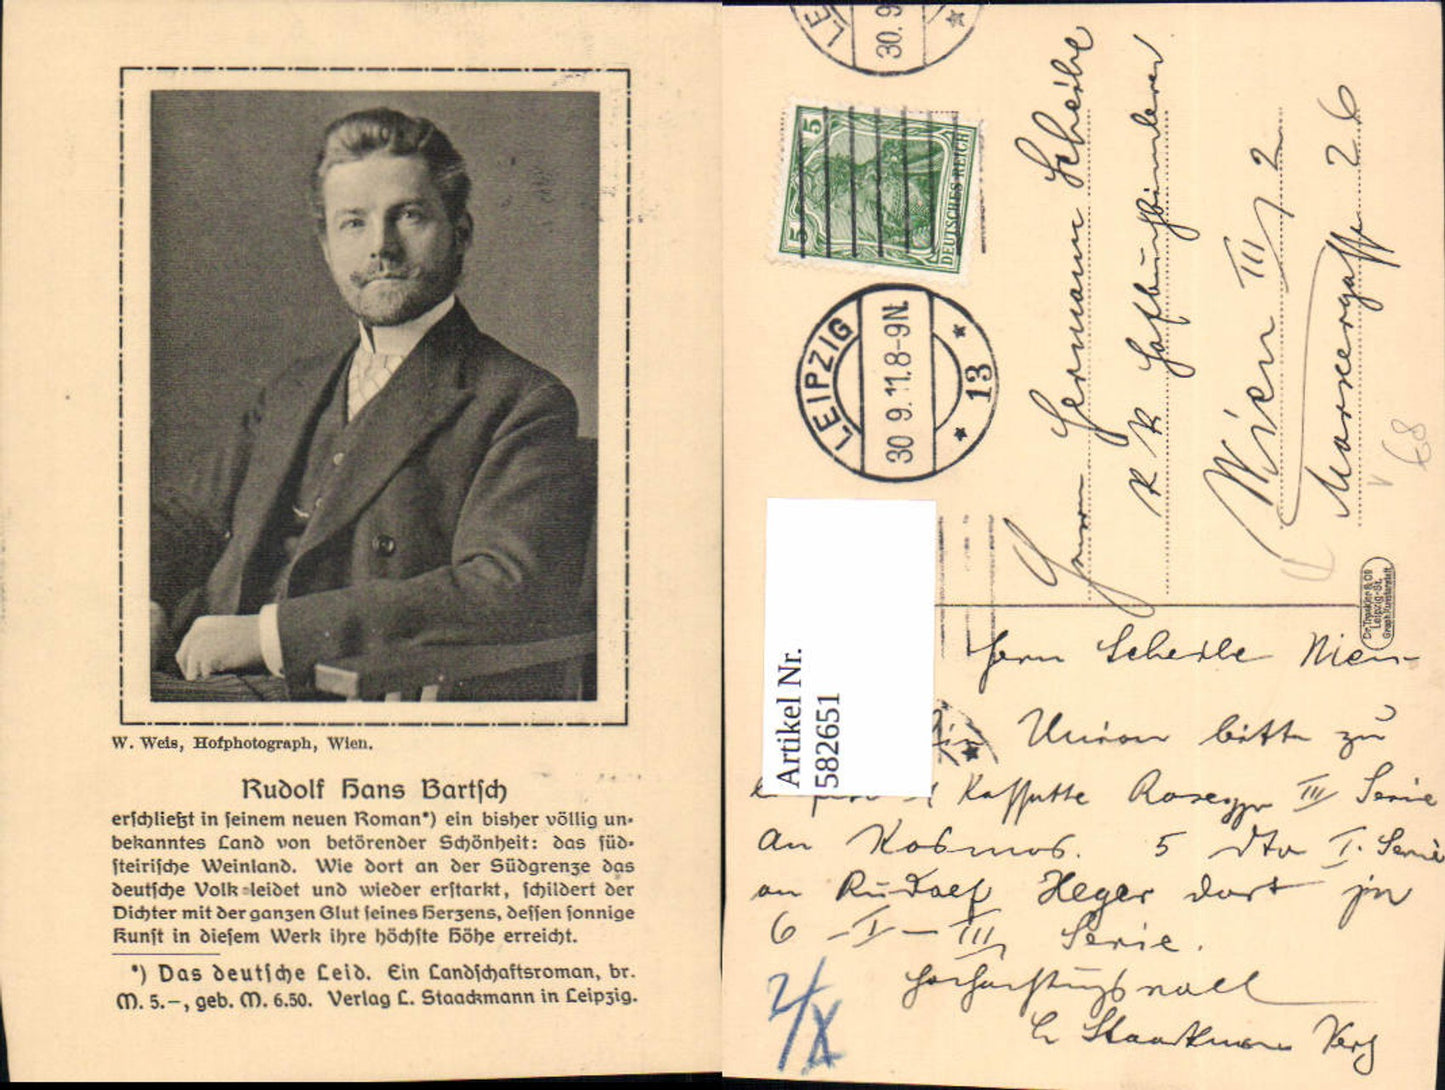 W. Weis, Hofphotograph, Wien.
Rudolf Hans Bartsch
erschließt in seinem neuen Roman*) ein bisher völlig un-
bekanntes Land von betörender Schönheit: das süd-
steirische Weinland. Wie dort an der Südgrenze das
deutsche Volk leidet und wieder erstarkt, schildert der
Dichter mit der ganzen Glut seines Herzens, dessen sonnige
Kunst in diesem Werk ihre höchste Höhe erreicht.
*) Das deutsche Leid. Ein Landschaftsroman, br.
M. 5.–, geb. M. 6.50. Verlag L. Staackmann in Leipzig.
LE
30. 9
5 5
DEUTSCHES REICH
LEIPZIG
30 9. 11. 8-9N.
* 13 *
Herrn Hermann Scheibe
K K
Wien III/2
Marxergasse 26
68
Dr. Trenkler & Co
Leipzig-St.
Graph. Kunstanstalt
Artikel Nr.
582651
Herrn Scheibe Wien
Union bitte zu
III Serie
an Kosmos. 5 dto I. Serie
an Rudolf Heger dort
6 I – III Serie.
Hochachtungsvoll
L Staackmann Verl
2/X